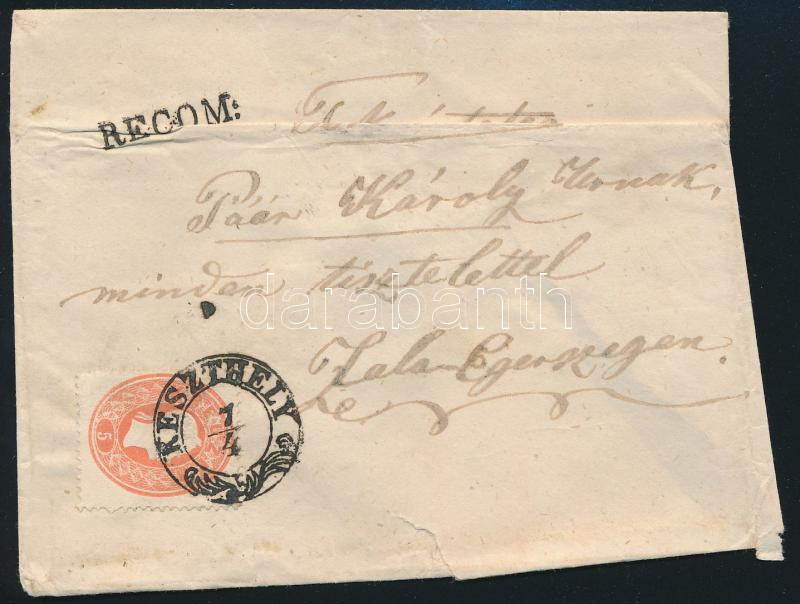 RECOM:
Páár Károly Urnak,
minden tisztelettel
darabanth
Zala-Egerszegen.
KESZTHELY
1/4
5